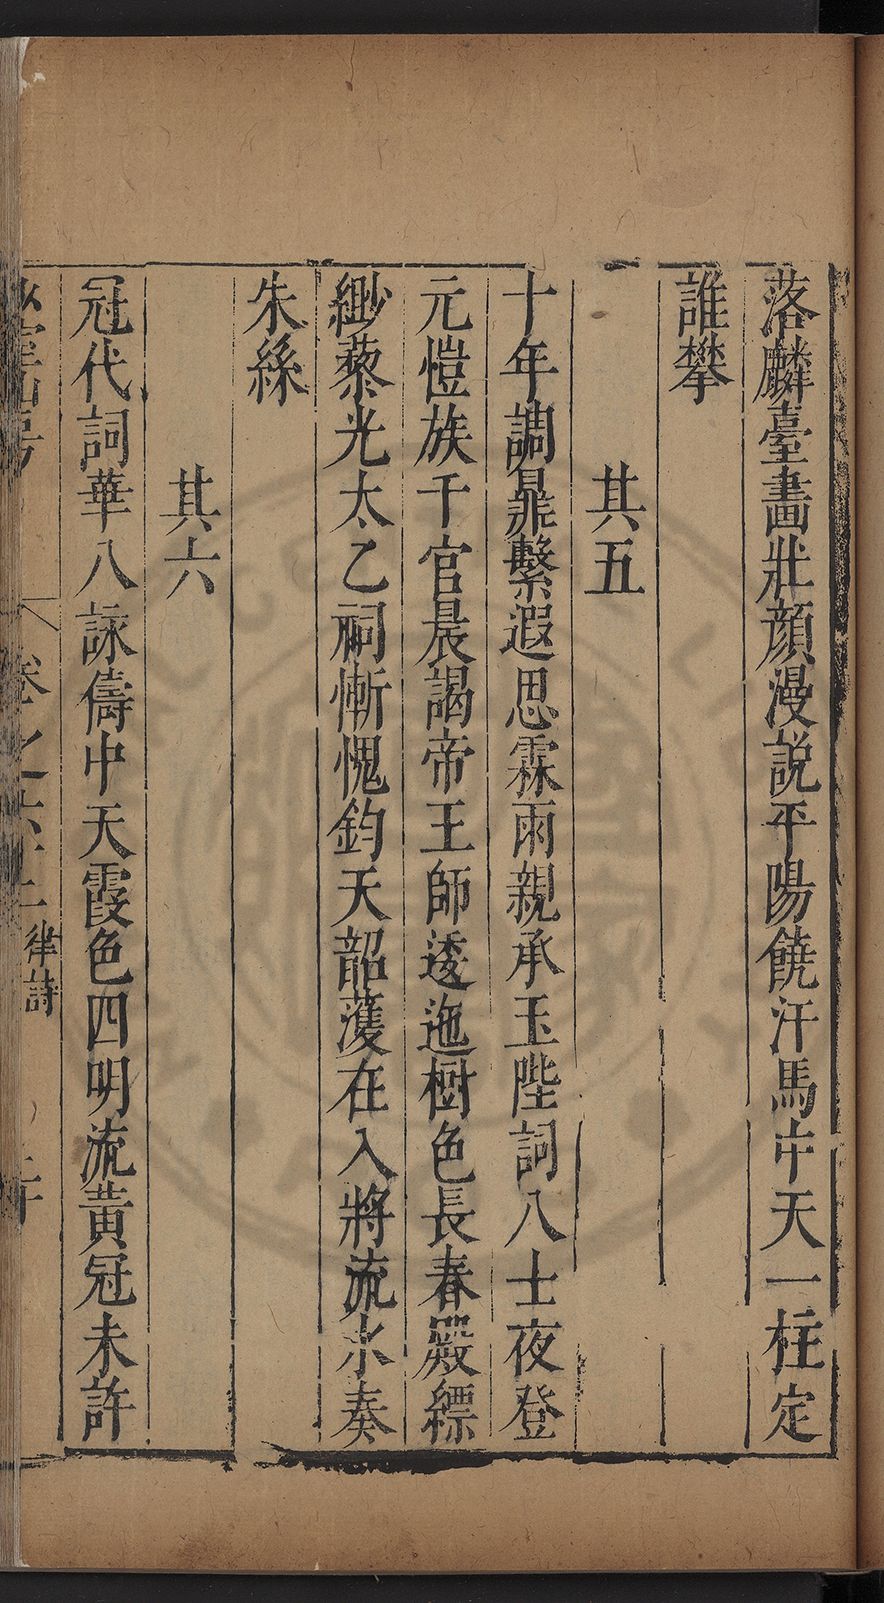 落麟臺畫壯顔漫説平陽饒汗馬中天一柱定
誰攀
其五
十年調鼎繫遐思霖雨親承玉陛詞八士夜登
元愷族千官晨謁帝王師逶迤樹色長春殿縹
緲藜光太乙祠慚愧鈞天韶濩在入將流水奏
朱絲
其六
冠代詞華八詠儔中天霞色四明流黃冠未許
卷之六十
律詩